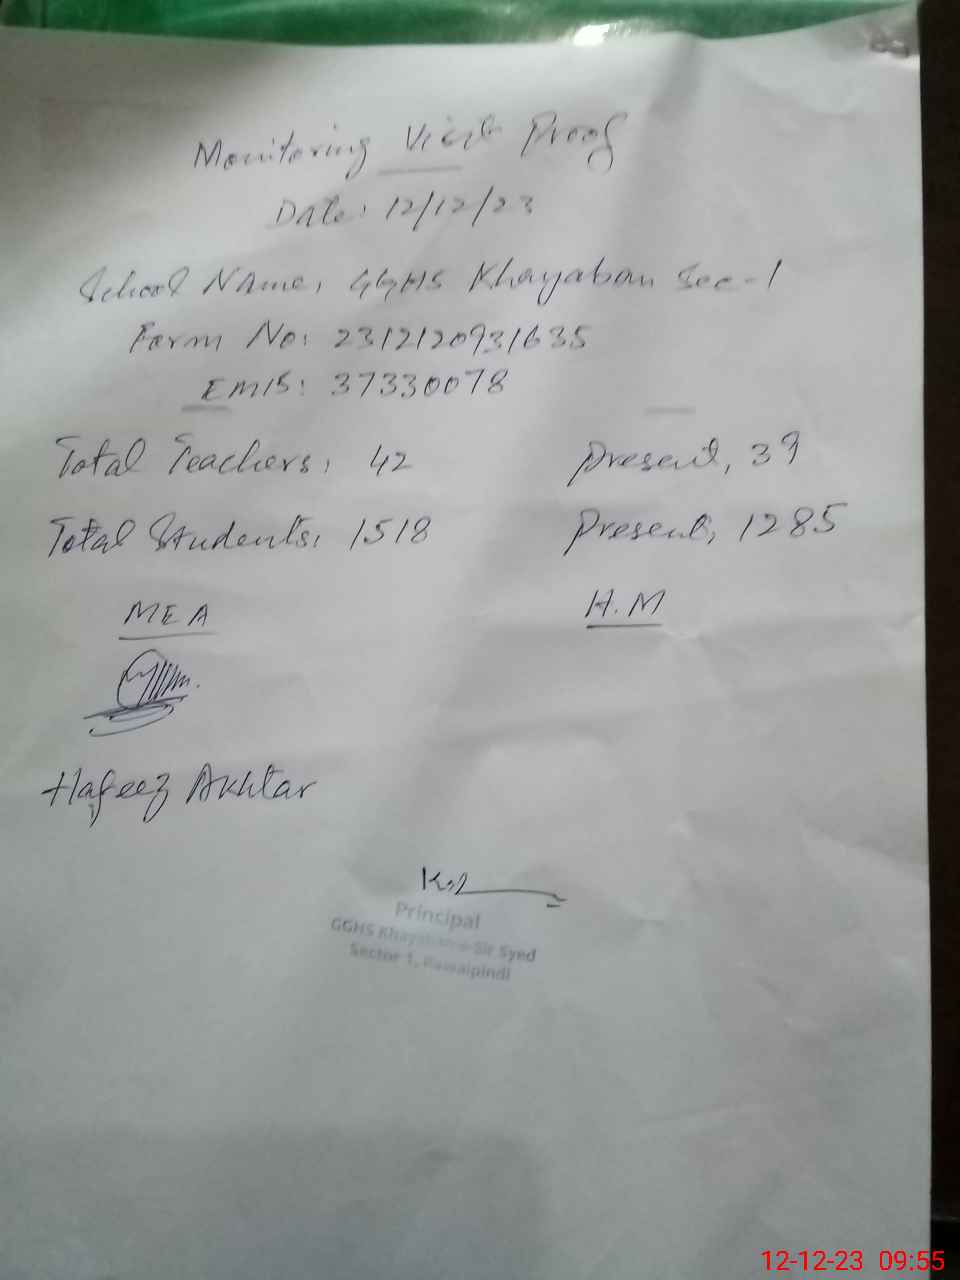 Monitoring Visit Proof
Date: 12/12/23
School Name, GGHS Khayaban Sec-1
Form No: 2312120931635
EMIS: 37330078
Total Teachers, 42 Present, 39
Total Students, 1518 Present, 1285
MEA H.M
Hafeez Akhtar
Principal
GGHS Khayaban-e-Sir Syed
Sector 1, Rawalpindi
12-12-23 09:55